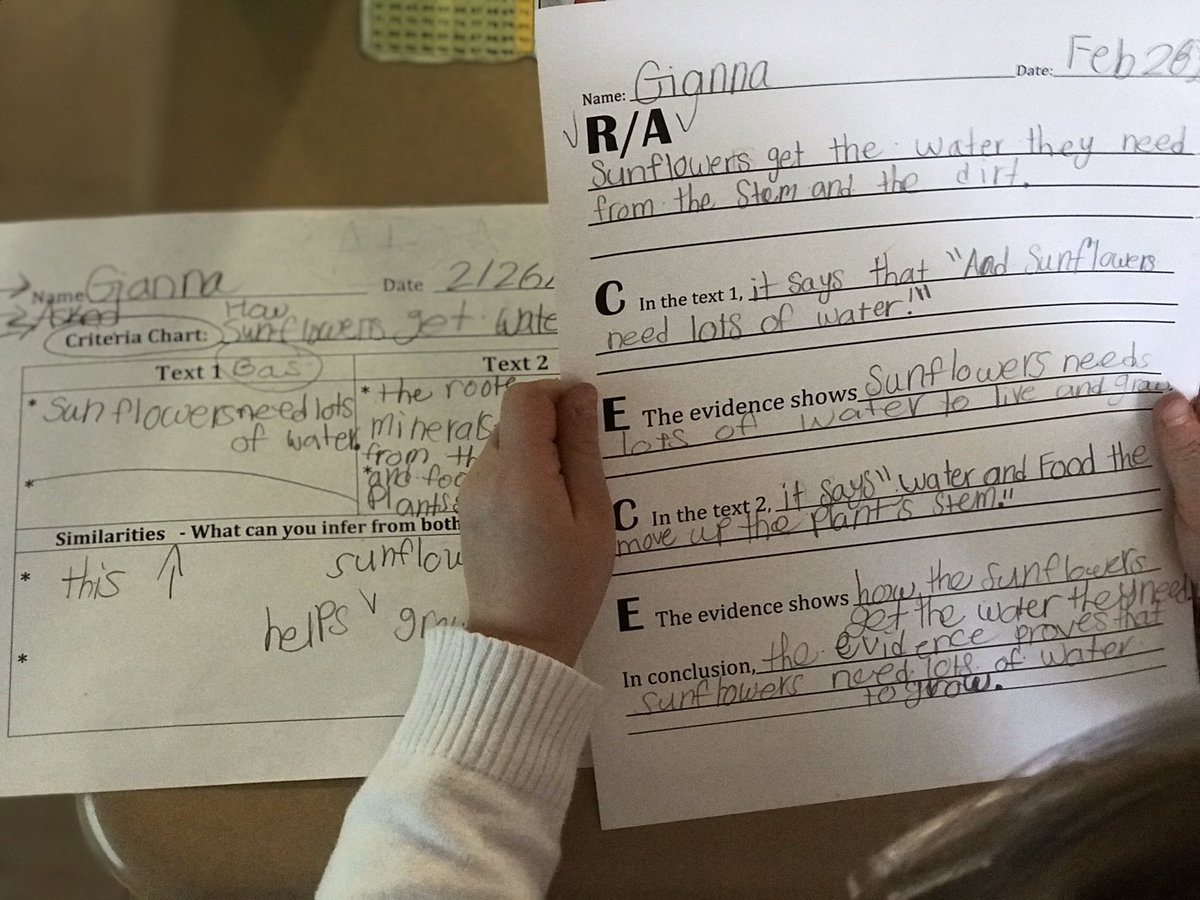 Name Gianna Date 2/26/
Criteria Chart: How
Sunflowers get wate
Text 1 Gas Text 2
* Sunflowers need lots
of water.
*
* the roote
minerals
from th
*and foo
Plants
Similarities - What can you infer from both
* this ↑ sunflow
helps
*
Name: Gianna Date: Feb 26
R/A
Sunflowers get the water they need
from the Stem and the dirt.
C In the text 1, it says that "And Sunflowers
need lots of water!"
E The evidence shows Sunflowers needs
lots of water to live and grow
C In the text 2, it says "water and Food the
move up the plant's stem."
E The evidence shows how the sunflowers
get the water they need
In conclusion, the evidence proves that
sunflowers need lots of water
to grow.